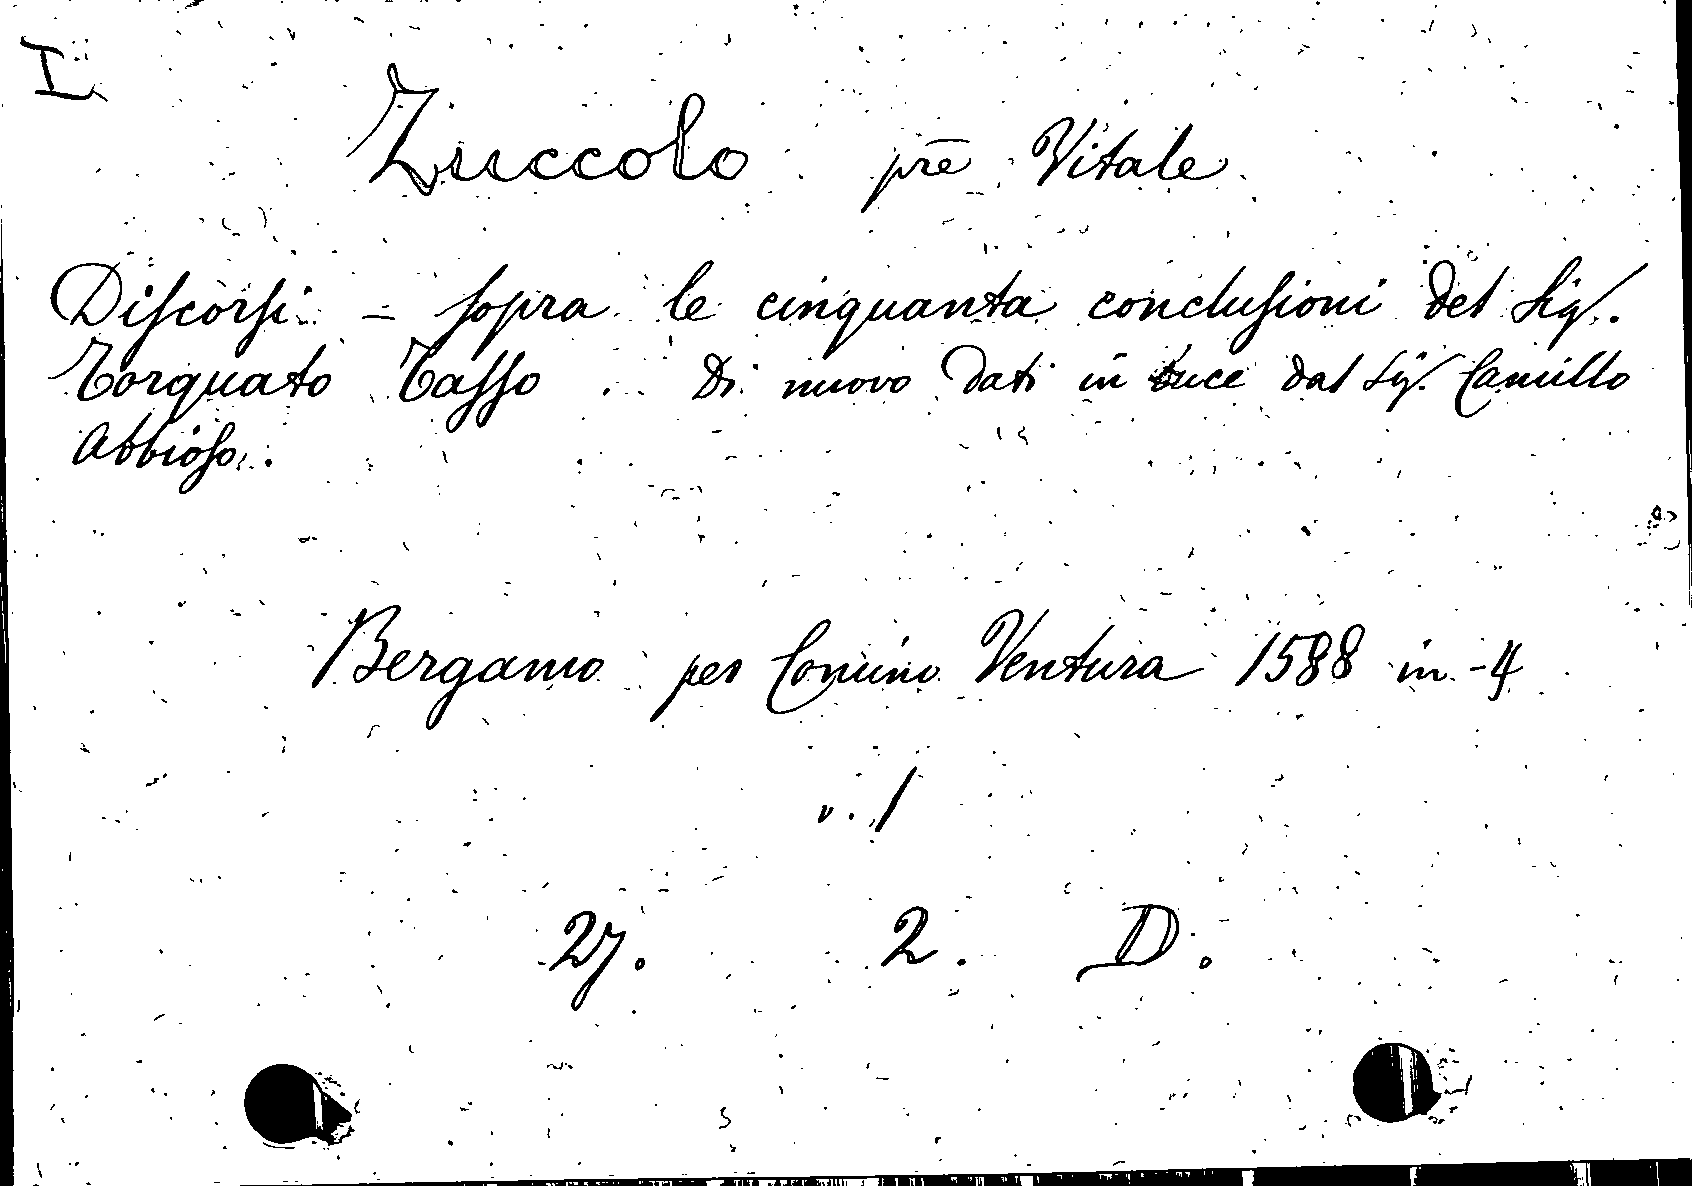 I
Zuccolo prē Vitale
Discorsi - sopra le cinquanta conclusioni del Sig.
Torquato Tasso. Di nuovo dati in luce dal Sig. Camillo
Abbioso.
Bergamo per Comino Ventura 1588 in-4
v. 1
27. 2. D.